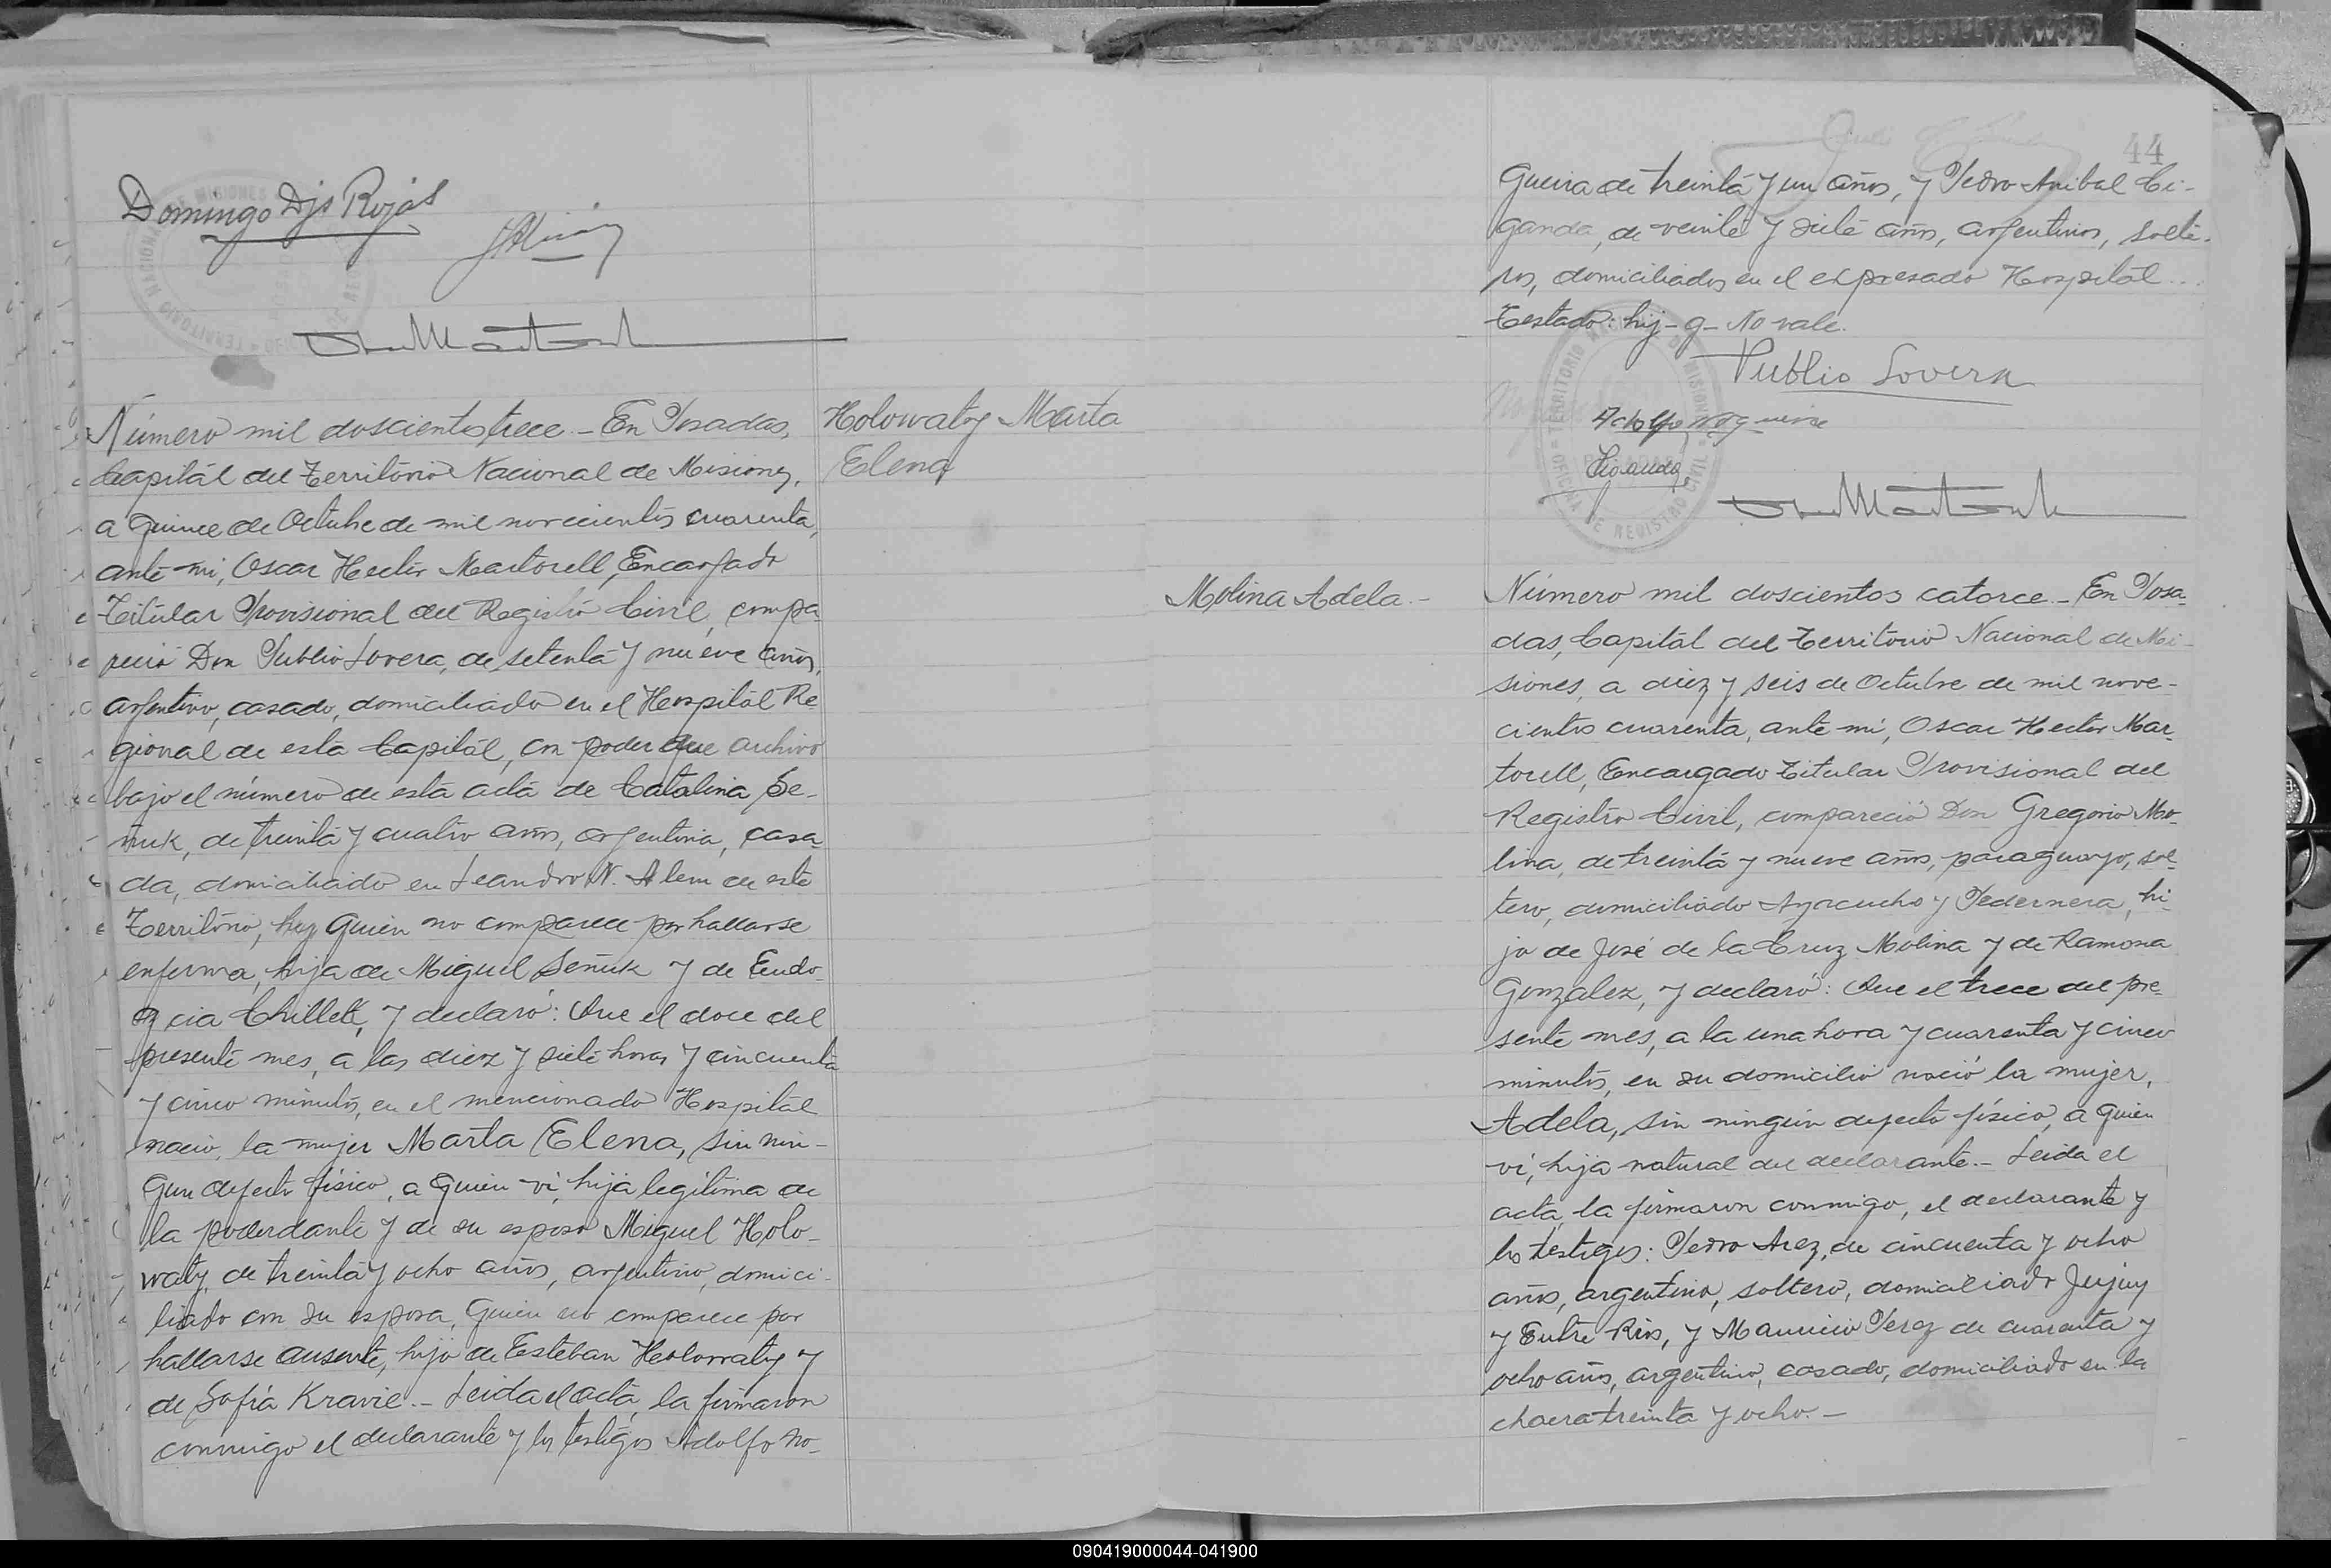 Domingo Djs Rojas
Número mil doscientos trece - En Posadas,
Capitál del Território Nacional de Misiones,
a quince de Octubre de mil novecientos cuarenta,
ante mi, Oscar Hector Martorell, Encargado
Titular Provisional del Registro Civil, compa-
reció Don Publio Lovera, de setenta y nueve años,
argentino, casado, domiciliado en el Hospital Re-
gional de esta Capital, con poder que archivo
bajo el número de esta acta de Catalina Se-
ñuk, de treinta y cuatro años, argentina, casa-
da, domiciliado en Leandro N. Alem de este
Território, hij quien no comparece por hallarse
enferma, hija de Miguel Señuk y de Eudo-
g cia Chillek, y declaró: Que el doce del
presente mes, a las diez y siete horas y cincuenta
y cinco minutos, en el mencionado Hospital
nació, la mujer Marta Elena, sin nin-
gun defecto físico, a quien ví, hija legítima de
la poderdante y de su esposo Miguel Holo-
waty, de treinta y ocho años, argentino, domici-
liado con su esposa, quien no comparece por
hallarse ausente, hijo de Esteban Holowaty y
de Sofía Kravie. - Leida el acta, la firmaron
conmigo el declarante y los testigos Adolfo No-
Holowaty Marta
Elena
44
gueira de treinta y un años, y Pedro Anibal Ci-
ganda, de veinte y siete años, argentinos, solte-
ros, domiciliados en el expresado Hospital...
Testado: hij - g - No vale.
Publio Lovera
Adolfo Nogueira
Ciganda
TERRITORIO NACIONAL DE MISIONES
POSADAS
OFICINA DE REGISTRO CIVIL
Molina Adela. -
Número mil doscientos catorce - En Posa-
das, Capital del Território Nacional de Mi-
siones, a diez y seis de Octubre de mil nove-
cientos cuarenta, ante mí, Oscar Hector Mar-
torell, Encargado Titular Provisional del
Registro Civil, compareció Don Gregorio Mo-
lina, de treinta y nueve años, paraguayo, sol-
tero, domiciliado Ayacucho y Pedernera, hi-
jo de José de la Cruz Molina y de Ramona
Gonzalez, y declaró: Que el trece del pre-
sente mes, a la una hora y cuarenta y cinco
minutos, en su domicilio nació la mujer,
Adela, sin ningún defecto físico, a quien
ví, hija natural del declarante. - Leida el
acta, la firmaron conmigo, el declarante y
los testigos: Pedro Arez, de cincuenta y ocho
años, argentino, soltero, domiciliado Jujuy
y Entre Rios, y Mauricio Perez de cuarenta y
ocho años, argentino, casado, domiciliado en la
chacra treinta y ocho. -
090419000044-041900